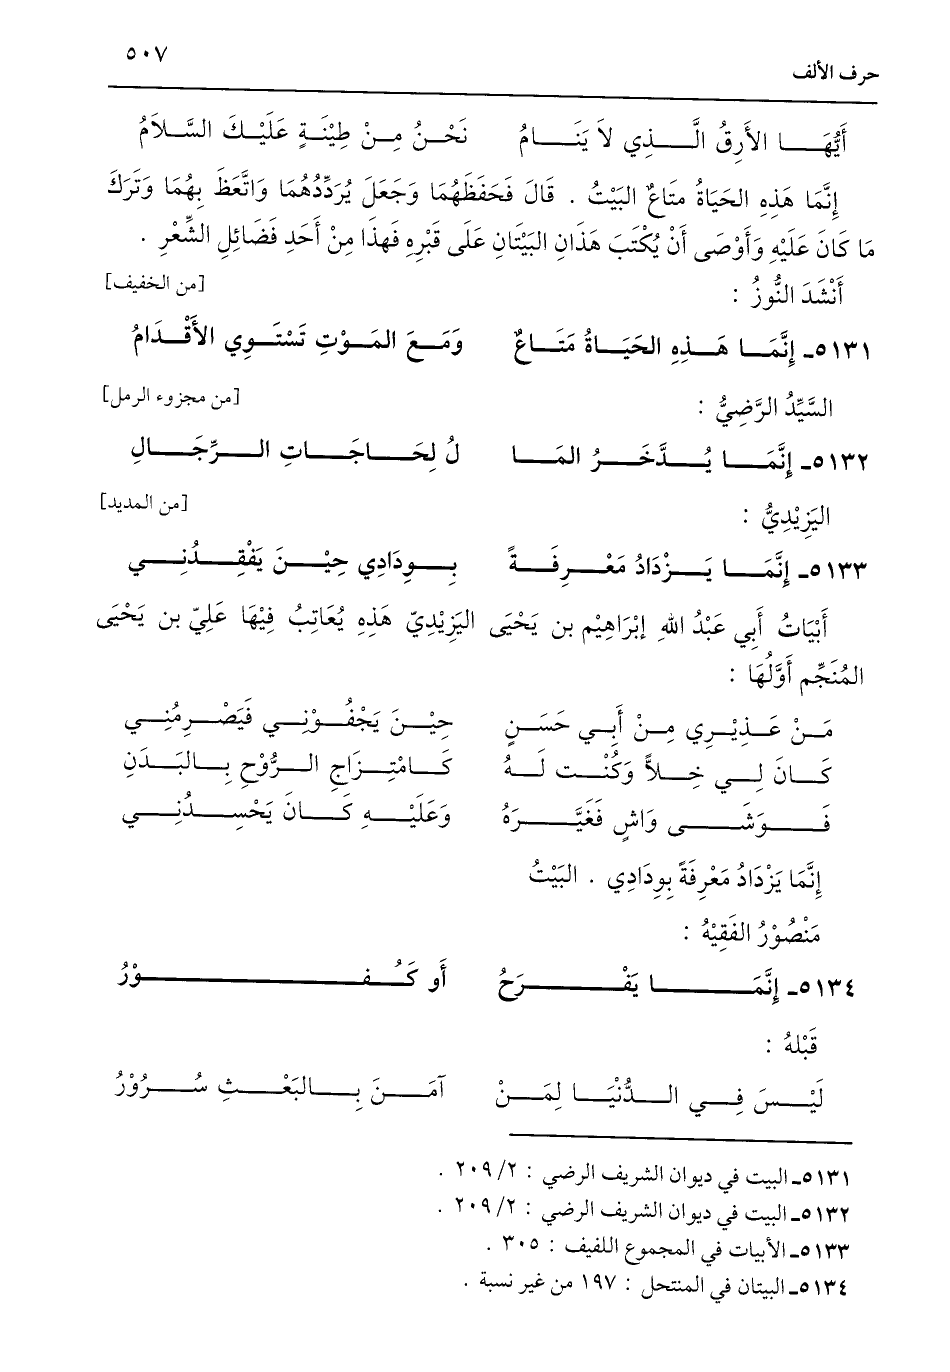 ٥٠٧
حرف الألف
أَيُّهَا الأَرِقُ الَّذِي لاَ يَنَامُ نَحْنُ مِنْ طِيْنَةٍ عَلَيْكَ السَّلاَمُ
إِنَّمَا هَذِهِ الحَيَاةُ متَاعٌ البَيْتُ . قَالَ فَحَفَظَهُمَا وَجَعَلَ يُرَدِّدُهُمَا وَاتَّعَظَ بِهُمَا وَتَرَكَ
مَا كَانَ عَلَيْهِ وَأَوْصَى أَنْ يُكْتَبَ هَذَانِ البَيْتَانِ عَلَى قَبْرِهِ فَهذَا مِنْ أَحَدِ فَضَائِلِ الشِّعْرِ .
أَنْشَدَ النُّوزُ : [من الخفيف]
٥١٣١ـ إِنَّمَا هَذِهِ الحَيَاةُ مَتَاعٌ وَمَعَ المَوْتِ تَسْتَوِي الأَقْدَامُ
السَّيِّدُ الرَّضِيُّ : [من مجزوء الرمل]
٥١٣٢ـ إِنَّمَا يُدَّخَرُ المَا لُ لِحَاجَاتِ الرِّجَالِ
اليَزِيْدِيُّ : [من المديد]
٥١٣٣ـ إِنَّمَا يَزْدَادُ مَعْرِفَةً بِوِدَادِي حِيْنَ يَفْقِدُنِي
أَبْيَاتُ أَبِي عَبْدُ اللهِ إبْرَاهِيْم بن يَحْيَى اليَزِيْدِيّ هَذِهِ يُعَاتِبُ فِيْهَا عَلِيّ بن يَحْيَى
المُنَجِّم أَوَّلُهَا :
مَنْ عَذِيْرِي مِنْ أَبِي حَسَنٍ حِيْنَ يَجْفُوْنِي فَيَصْرِمُنِي
كَانَ لِي خِلاًّ وَكُنْت لَهُ كَامْتِزَاجِ الرُّوْحِ بِالبَدَنِ
فَوَشَى وَاشٍ فَغَيَّرَهُ وَعَلَيْهِ كَانَ يَحْسِدُنِي
إِنَّمَا يَزْدَادُ مَعْرِفَةً بِودَادِي . البَيْتُ
مَنْصُوْرُ الفَقِيْهُ :
٥١٣٤ـ إِنَّمَا يَفْرَحُ أَو كَفُوْرُ
قَبْلهُ :
لَيْسَ فِي الدُّنْيَا لِمَنْ آمَنَ بِالبَعْثِ سُرُوْرُ
٥١٣١ـ البيت في ديوان الشريف الرضي : ٢/ ٢٠٩ .
٥١٣٢ـ البيت في ديوان الشريف الرضي : ٢/ ٢٠٩ .
٥١٣٣ـ الأبيات في المجموع اللفيف : ٣٠٥ .
٥١٣٤ـ البيتان في المنتحل : ١٩٧ من غير نسبة .